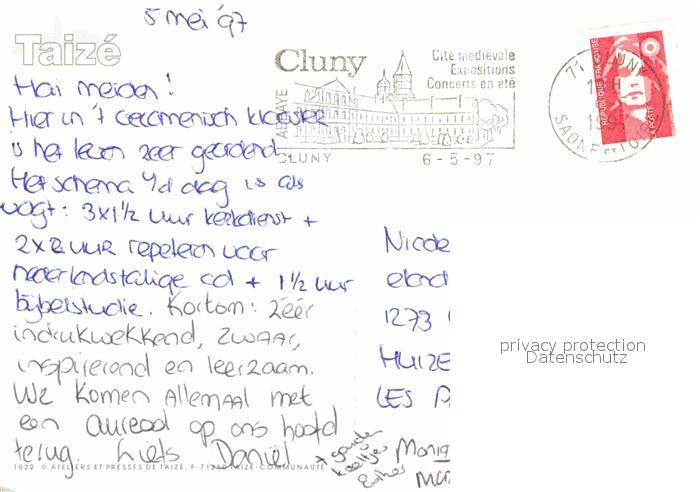 5 mei '97
Taizé
Hai meiden!
Hier in 't oecumenisch klooster
is het leven zeer geordend
Het schema v/d dag is als
volgt: 3x1½ uur kerkdienst +
2x2 uur repeteren voor
nederlandstalige cd + 1½ uur
bijbelstudie. Kortom: zéér
indrukwekkend, zwaar,
inspirerend en leerzaam.
We komen allemaal met
een aureool op ons hoofd
terug. Liefs Daniël
+
Esther
1022 © ATELIERS ET PRESSES DE TAIZÉ, F-71250 TAIZÉ-COMMUNAUTÉ
Cluny
Cité médiévale
Expositions
Concerts en été
ABBAYE
CLUNY
6-5-97
71
SAONE ET LO
RÉPUBLIQUE FRANÇAISE
LA POSTE
Nicole
eland
1273
HUIZE
LES P
privacy protection
Datenschutz